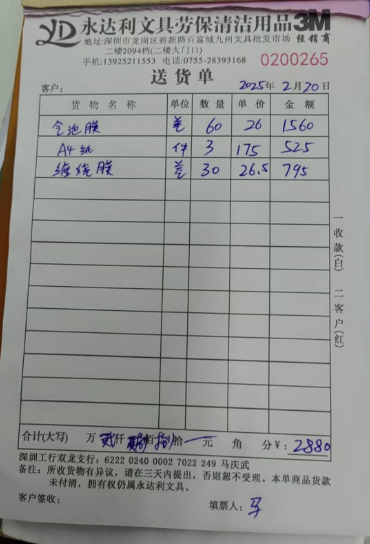 YD 永达利文具劳保清洁用品 3M 经销商
地址:深圳市龙岗区碧新路百富城九州文具批发市场
二楼2094档(二楼大门口)
手机:13925211553 电话:0755-28393168
送货单 0200265
客户: 2025年2月20日
货物名称 单位 数量 单价 金额
60 26 1560
A4纸 件 3 175 525
缠绕膜 30 26.5 795
一收款(白) 二客户(红)
合计(大写) 万 贰仟 捌佰 捌拾 元 角 分¥: 2880
深圳工行双龙支行: 6222 0240 0002 7022 249 马庆武
备注: 所收货物有异议, 请在三天内提出, 否则恕不受理。本单商品货款
未付清, 拥有权仍属永达利文具。
客户签收: 填票人: 马